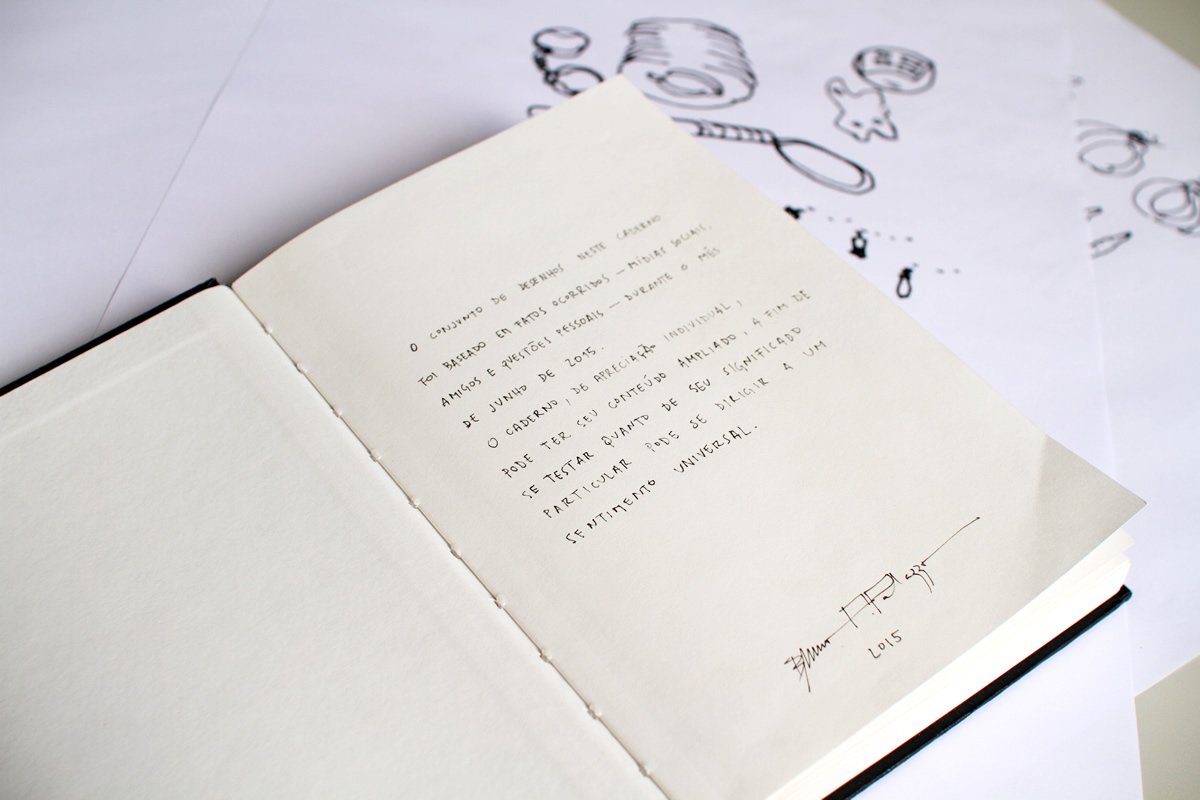 O CONJUNTO DE DESENHOS NESTE CADERNO
FOI BASEADO EM FATOS OCORRIDOS — MÍDIAS SOCIAIS,
AMIGOS E QUESTÕES PESSOAIS — DURANTE O MÊS
DE JUNHO DE 2015.
O CADERNO, DE APRECIAÇÃO INDIVIDUAL,
PODE TER SEU CONTEÚDO AMPLIADO, A FIM DE
SE TESTAR QUANTO DE SEU SIGNIFICADO
PARTICULAR PODE SE DIRIGIR A UM
SENTIMENTO UNIVERSAL.
Bruno
2015